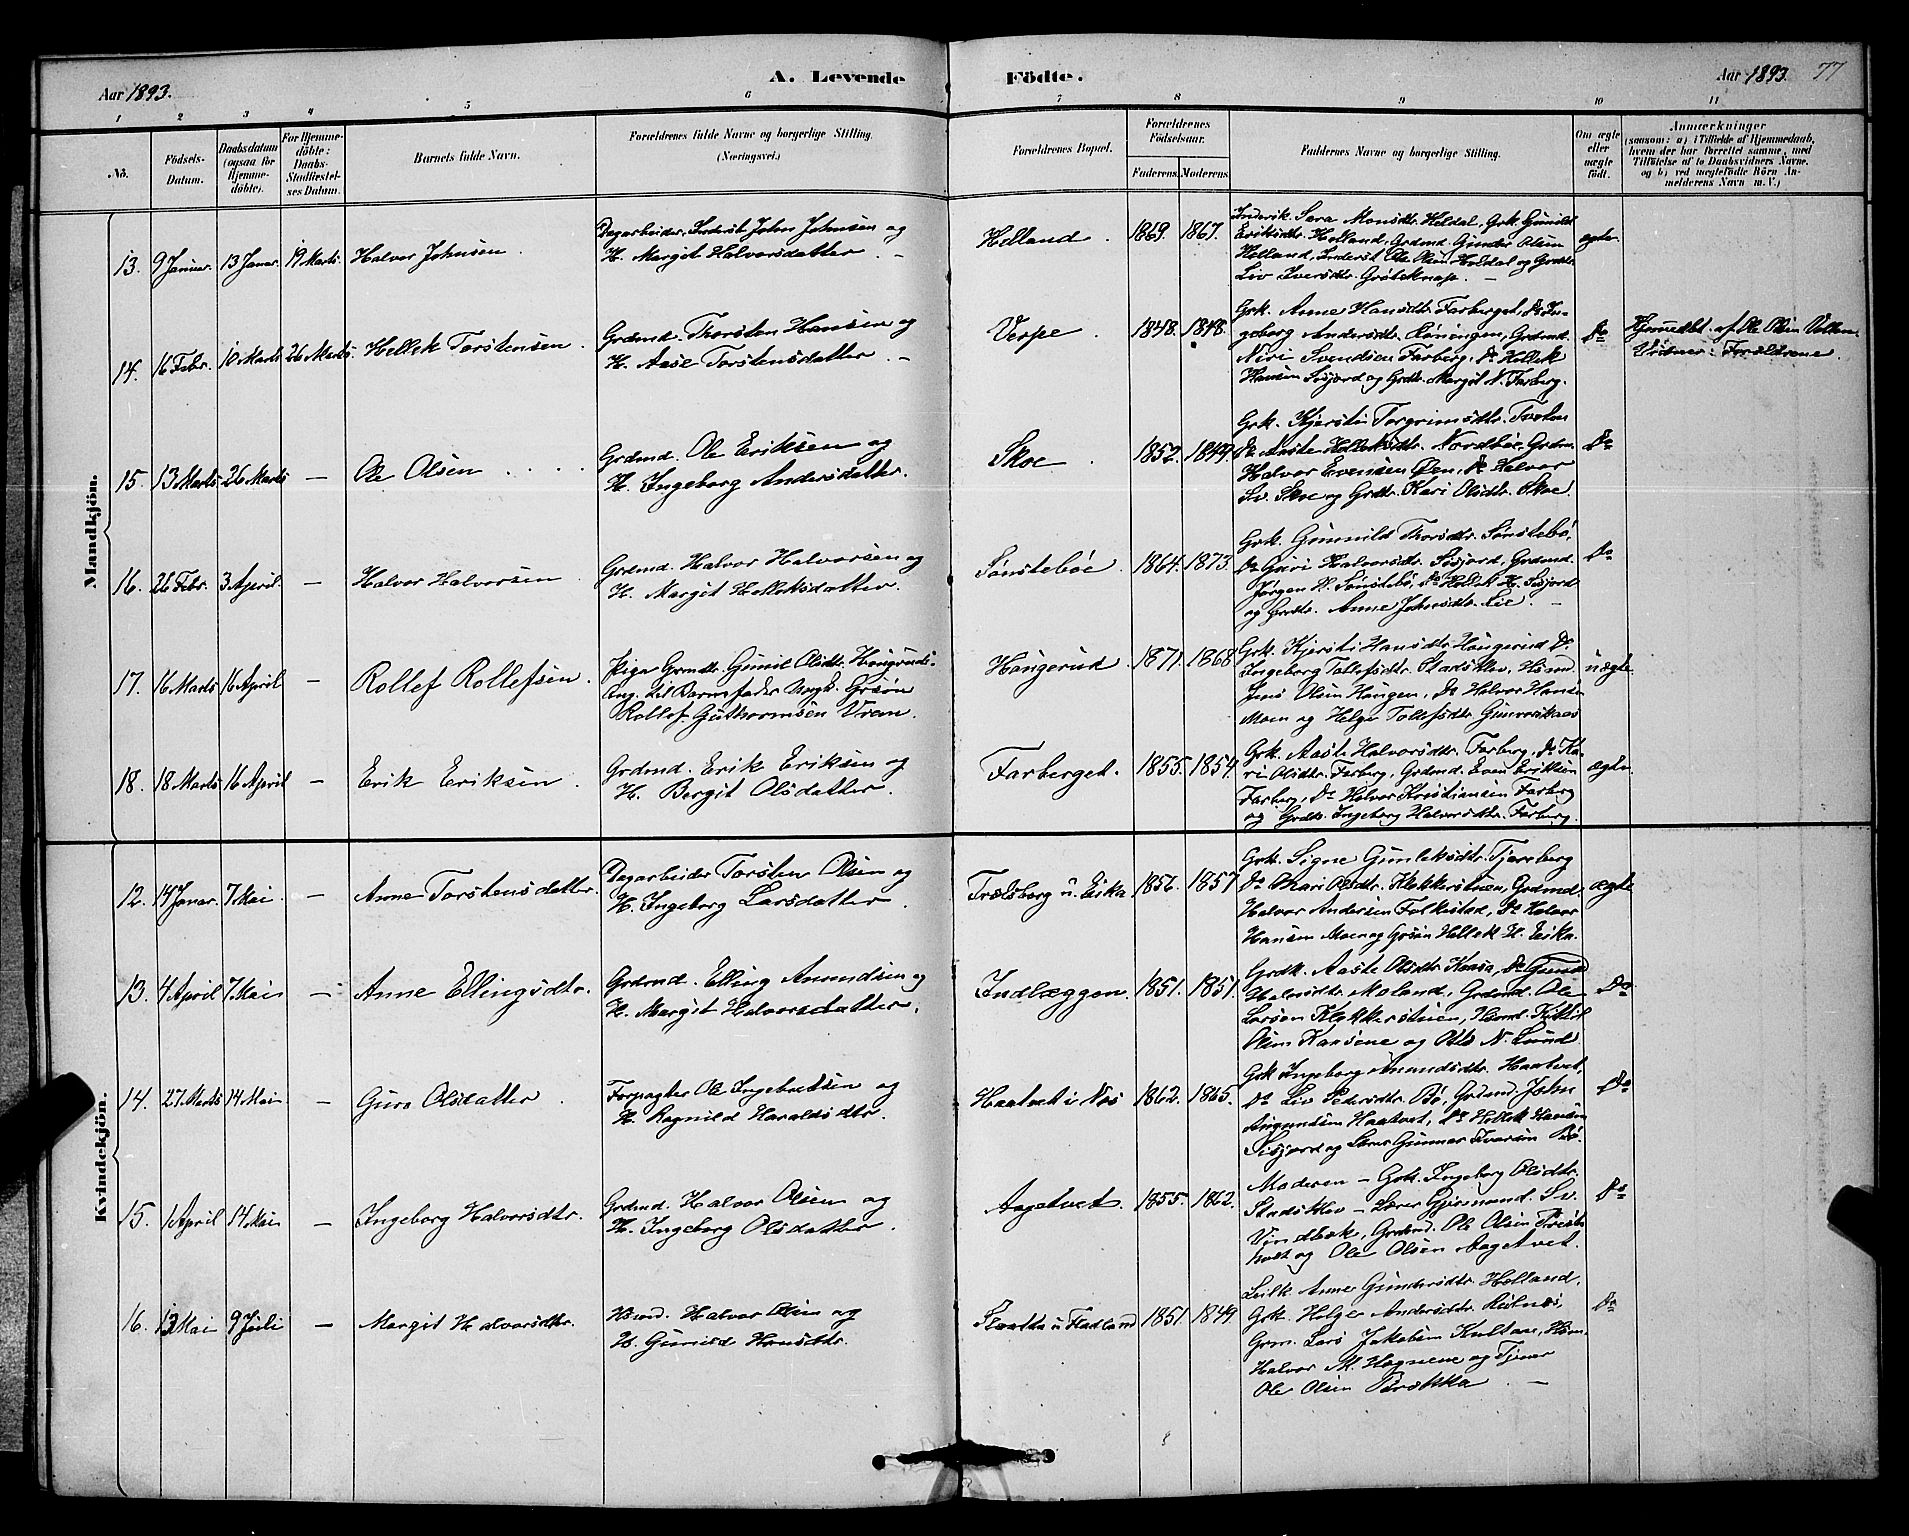 Aar 1893.
A. Levende Födte.
Aar 1893. 77
1 2 3 4 5 6 7 8 9 10 11
No.
Födsels-Datum.
Daabsdatum (ogsaa for Hjemme-döbte).
For Hjemme-döbte: Daabs-Stadfæstel-ses Datum.
Barnets fulde Navn.
Forældrenes fulde Navne og borgerlige Stilling. (Næringsvei.)
Forældrenes Bopæl.
Forældrenes Födselsaar.
Faderens. Moderens.
Faddernes Navne og borgerlige Stilling.
Om ægte eller uægte födt.
Anmærkninger
(saasom: a) i Tilfælde af Hjemmedaab, hvem der har forrettet samme, med Tilföielse af to Daabsvidners Navne. og b) ved uægtefödte Börn An-melderens Navn m. V.)
Mandkjön.
13. 9 Januar. 13 Janr. 19 Marts. Halvor Johnsen
Dagarbeider, Inderst John Johnsen og
H. Margit Halvorsdatter. –
Helland. 1869. 1867.
Inderik. Sara Monsdtr. Heldal, Grk. Gunild
Eriksdtr. Helland, Grdmd. Gunder Olsen
Helland, Inderst Ole Olsen Heldal og Grdtr.
Liv Iversdtr. –
ægte
14. 16 Febr. 10 Marts 26 Marts. Hellek Torstensen.
Grdmd. Thorsten Hansen og
H. Aase Torstensdatter. –
Verpe. 1848. 1848.
Grk. Anne Hansdtr. Farberget, Do In-
geborg Andersdtr. Gromd.
Niri Svendsen Farberg, Do Hellek
Hansen Sisjord og Grdtr. Margit N. Farberg.
Do
Hjemmedbt. af Ole Olsen
Vidner: Forældrene.
15. 13 Marts 26 Marts – Ole Olsen
Grdmd. Ole Eriksen og
H. Ingeborg Andersdatter.
Skoe. 1852. 1849.
Grk. Kjersti Torgrimsdtr.
Do Aaste Helleksdtr. Nordbøe, Grdm.
Halvor Evensen Øen, Do Halvor
Sv. Skoe og Grdtr. Kari Olsdtr. Skoe.
Do
16. 26 Febr. 3 April. – Halvor Halvorsen
Grdmd. Halvor Halvorsen og
H. Margit Helleksdatter.
Sønstebøe. 1864. 1873.
Grk. Gunnild Thorsdtr. Sønstebø,
Do Guri Halvorsdtr. Sisjord, Grdmd.
Jørgen H. Sønstebø, Do Hellek H. Sisjord
og Grdtr. Anne Johnsdtr. Lie. –
Do
17. 16 Marts 16 April – Rollef Rollefsen.
Pige Grmdtr. Gunil Olsdtr. Haugerud.
Ang. til Barnefader Ungk. Grsøn
Rollef Guthormsen Vrem.
Haugerud. 1871. 1868
Grk. Kjersti Hansdtr. Haugerud Do
Ingeborg Tollefsdtr. Stadsklev, Hsmd.
Jens Olsen Haugen, Do Halvor Hansen
Moen og Helge Tollefsdtr.
uægte
18. 18 Marts 16 April – Erik Eriksen.
Grdmd. Erik Eriksen og
H. Bergit Olsdatter.
Farberget. 1855. 1854.
Grk. Aaste Halvorsdtr. Farberg, Do Ka-
ri Olsdtr. Farberg, Grdmd. Even Eriksen
Farberg, Do Halvor Kristiansen Farberg
og Grdtr. Ingeborg Halvorsdtr. Farberg.
ægte.
Kvindekjön.
12. 14 Janr. 7 Mai. – Anne Torstensdatter.
Dagarbeider Torsten Olsen og
H. Ingeborg Larsdatter.
Trælsberg u. Eika. 1856. 1857
Grk. Signe Gunleksdtr. Tjernberg
Do Mari Olsdtr. Klekkerstuen, Grdmd.
Halvor Andersen Folkestad, Do Halvor
Hansen Moen og Grsøn Hellek H. Eika.
ægte
13. 4 April 7 Mai – Anne Ellingsdtr.
Grdmd. Elling Amundsen og
H. Margit Halvorsdatter.
Indlæggen. 1851. 1851.
Grdk. Aaste Olsdtr. Kaasa, Do Gunil
Halvorsdtr. Moland, Grdmd. Ole
Larsen Klekkerstuen, Hsmd. Kittil
Olsen og Ole N. Lund.
Do
14. 27 Marts 14 Mai – Guro Olsdatter.
Forpagter Ole Ingebretsen og
H. Ragnild Haraldsdtr.
Haatvet i Nes 1862. 1865.
Grk. Ingeborg Amundsdtr. Haatvet,
Do Liv Pedersdtr. Bø, Grdmd John
Amundsen Haatvet, Do Hellek Hansen
Sisjord og Lærer Gunnar Iversen Bø.
Do
15. 1 April 14 Mai – Ingeborg Halvorsdtr.
Grdmd. Halvor Olsen og
H. Ingeborg Olsdatter.
Aagetvet. 1855. 1862.
Moderen – Grk. Ingeborg Olsdtr.
Stadsklev – Lærer Gjermund Sv.
Vindbæk, Grdmd. Ole Olsen
og Ole Olsen Aagetvet.
Do
16. 13 Mai 9 Juli – Margit Halvorsdtr.
Hsmd. Halvor Olsen og
H. Gunild Hansdtr.
Slaatta u. Fladland 1851 1849
Anne Gundersdtr. Helland,
Grk. Helge Andersdtr.
Grm. Lars Jakobsen Kultaas, Hsm.
Halvor M. Hagnene og Tjener
Ole Olsen –
Do